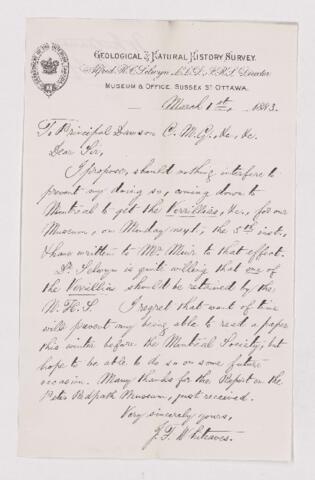 GEOLOGICAL & NATURAL HISTORY SURVEY.
Alfred R. C. Selwyn, L.L.D., F.R.S., Director
MUSEUM & OFFICE, SUSSEX ST. OTTAWA.
March 1st, 1883.
To Principal Dawson C.M.G., &c, &c.
Dear Sir,
I propose, should nothing interfere to
prevent my doing so, coming down to
Montreal to get the Verrillias, &c., for our
Museum, on Monday next, the 5th inst.,
& have written to Mr. Muir to that effect.
Dr. Selwyn is quite willing that one of
the Verrillias should be retained by the
N. H. S. I regret that want of time
will prevent my being able to read a paper
this winter before the Montreal Society, but
hope to be able to do so on some future
occasion. Many thanks for the Report on the
Peter Redpath Museum, just received.
Very sincerely yours,
J. F. Whiteaves.